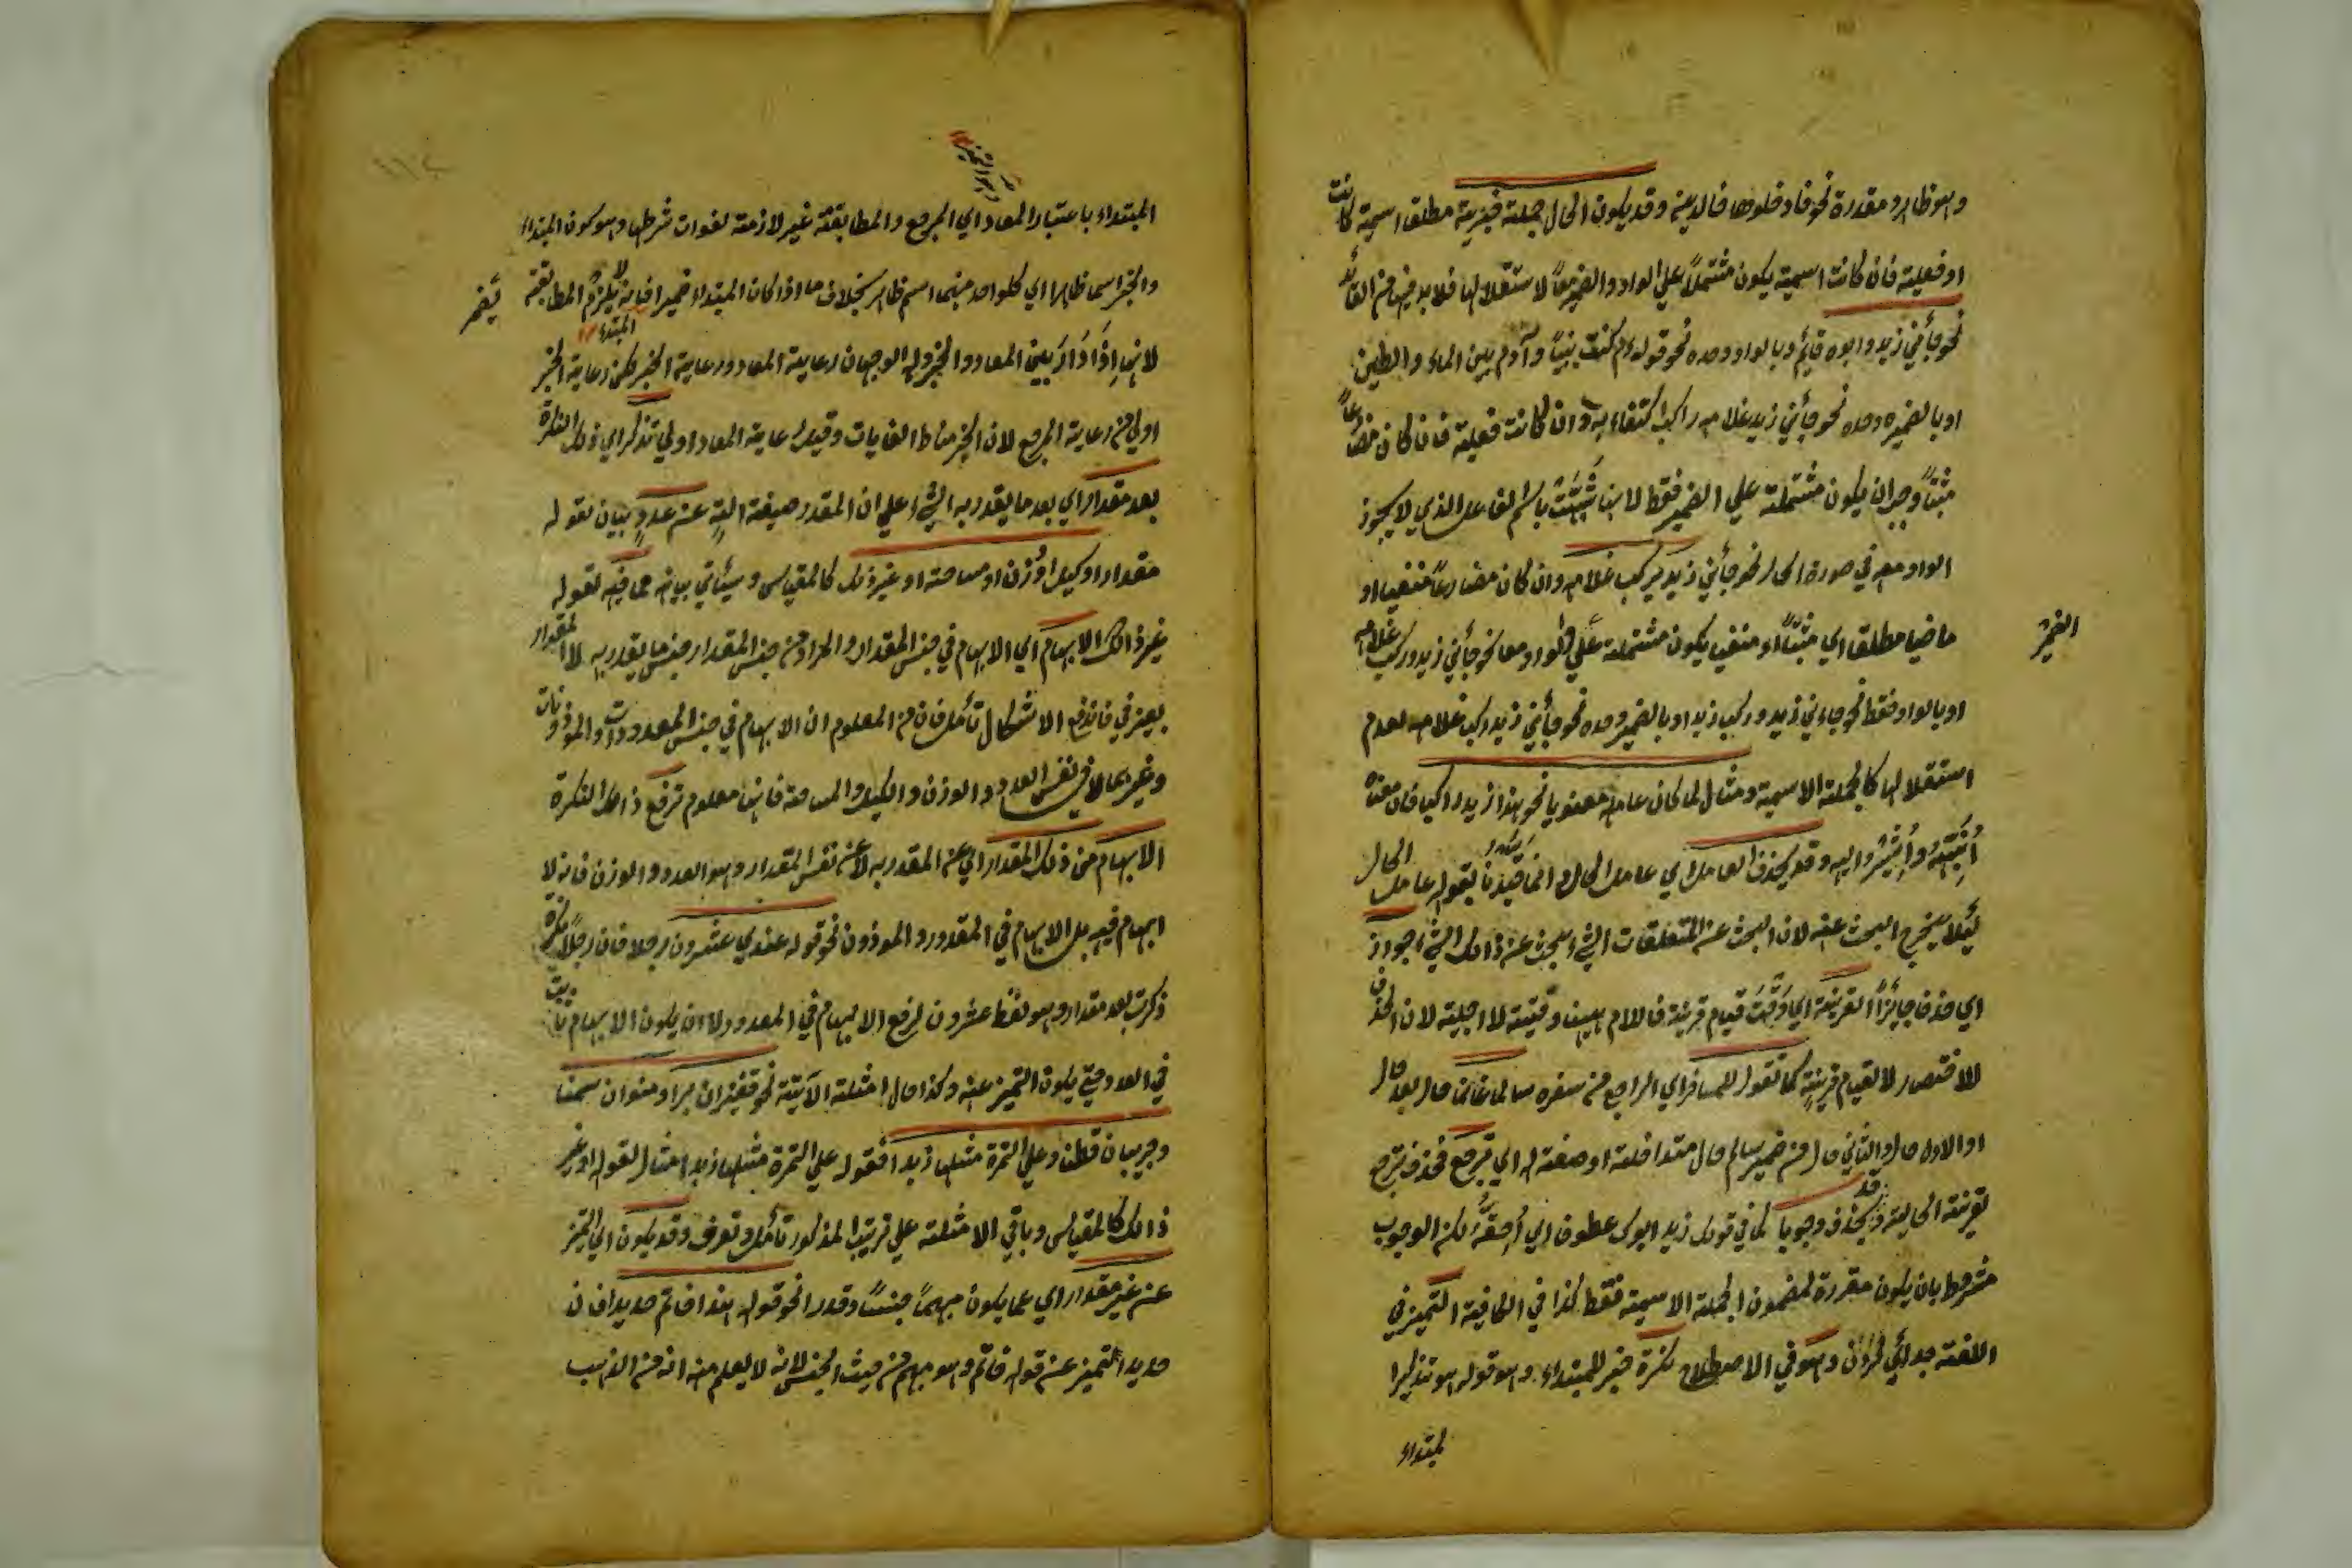 وهو ظاهر ومقدرة نحو فادخلوها خالدين وقد يكون الحال جملة خبرية مطلقا اسمية كانت
او فعلية فان كانت اسمية يكون مشتملاً علي الواو والضمير معاً لاستقلالها فلا بد فيها من
نحو جأني زيد وابوه قايم وبالواو وحده نحو قوله كنت نبياً وآدم بين الماء والطين
او بالضمير وحده نحو جأني زيد غلامه راكب اكتفاء به وان كانت فعلية فان كان مضارعاً
مثبتاً وجب ان يكون مشتملة علي الضمير فقط لانها شبهت باسم الفاعل الذي لا يجوز
الواو معه في صورة الحال نحو جأني زيد يركب غلامه وان كان مضارعاً منفيا او
ماضيا مطلقا اي مثبتاً او منفيا يكون مشتملة علي الواو معا نحو جأني زيد وركب غلامه
الضمير
او بالواو فقط نحو جاءني زيد وركب زيد او بالضمير وحده نحو جأني زيد ركب غلامه لعدم
استقلالها كالجملة الاسمية ومثال لما كان عامله معنويا نحو هذا زيد راكبا فان معناه
اُنَبِّهُ واُشير اليه وقد يحذف العامل اي عامل الحال وانما قيدنا بقوله عامل الحال
لئلا يخرج البحث عنه لان البحث عن المتعلقات الشئ بحث عن ذالك الشئ جوازا
اي حذفا جائزاً لقرينة اي وقت قيام قرينة فاللام ههنا وقتية لا اجلية لان الحذف
للاختصار لا لقيام قرينة كما تقول للمسافر اي الراجع من سفره سالما غانما حال بعد حال
او الاول حال والثاني حال من ضمير سالم حال متداخلة او صفة له اي ترجع فحذف ترجع
لقرينة الحالية وقد يحذف وجوبا كما في قولك زيد ابوك عطوفا اي اُحقه لكن الوجوب
مشروط بان يكون مقررة لمضمون الجملة الاسمية فقط كذا في الكافية التميز في
اللغة جدائي كردن وهو في الاصطلاح نكرة خبر للمبتداء وهو قوله هو تذكيرا
لمبتداء
المبتداء باعتبار المعاد اي المرجع والمطابقة غير لازمة لفوات شرطها وهو كون المبتداء
والخبر اسما ظاهرا اي كلواحد منهما اسم ظاهر بخلاف ما اذا كان المبتداء ضميرا فانه لا يلزم المطابقة
لانها اذا دار بين المعاد والخبر وله الوجهان رعاية المعاد ورعاية الخبر لكن رعاية الخبر
المبتداء
اولي من رعاية المرجع لان الخبر مناط الفايات وقيل رعاية المعاد اولي تذكر اي ذلك النكرة
بعد مقدار اي بعد ما يقدر به الشئ علي ان المقدر صيغة الة عن عدد بيان لقوله
مقدار او كيل او وزن او مساحة او غير ذلك كالمقياس وسيأتي بيانه مما فيه لقوله
غير ذالك الابهام اي الابهام في جنس المقدار والمراد من جنس المقدار جنس ما يقدر به لا المقدار
فاندفع الاشكال تأمل فان من المعلوم ان الابهام في جنس المعدودات والموزونات
وغيرهما لا في نفس العدد والوزن والكيل والمساحة فانها معلوم ترفع ذالك النكرة
الابهام من ذلك المقدار اي عن المقدر به لا عن نفس المقدار وهو العدد والوزن فانه لا
ابهام فيه بل الابهام في المقدور والموزون نحو قوله عندي عشرون رجلا فان رجلاً نكرة
ذكرت بعد مقدار وهو لفظ عشرون لرفع الابهام في المعدود لا ان يكون الابهام ثابت
في العدد حتي يكون التميز عنه وكذا حال امثلة الآتية نحو قفيزان برا ومنوان سمنا
وجريبان قطنا وعلي التمرة مثلها زبدا فقوله علي التمرة مثلها زبدا مثال لقوله او غير
ذالك كالمقياس وباقي الامثلة علي ترتيب المذكور تأمل وتعرف وقد يكون اي التميز
عن غير مقدار اي عما يكون مبهماً جنساً وقدرا نحو قوله هذا خاتم حديدا فان
حديدا تميز عن قوله خاتم وهو مبهم من حيث الجنس لانه لا يعلم منه انه من الذهب